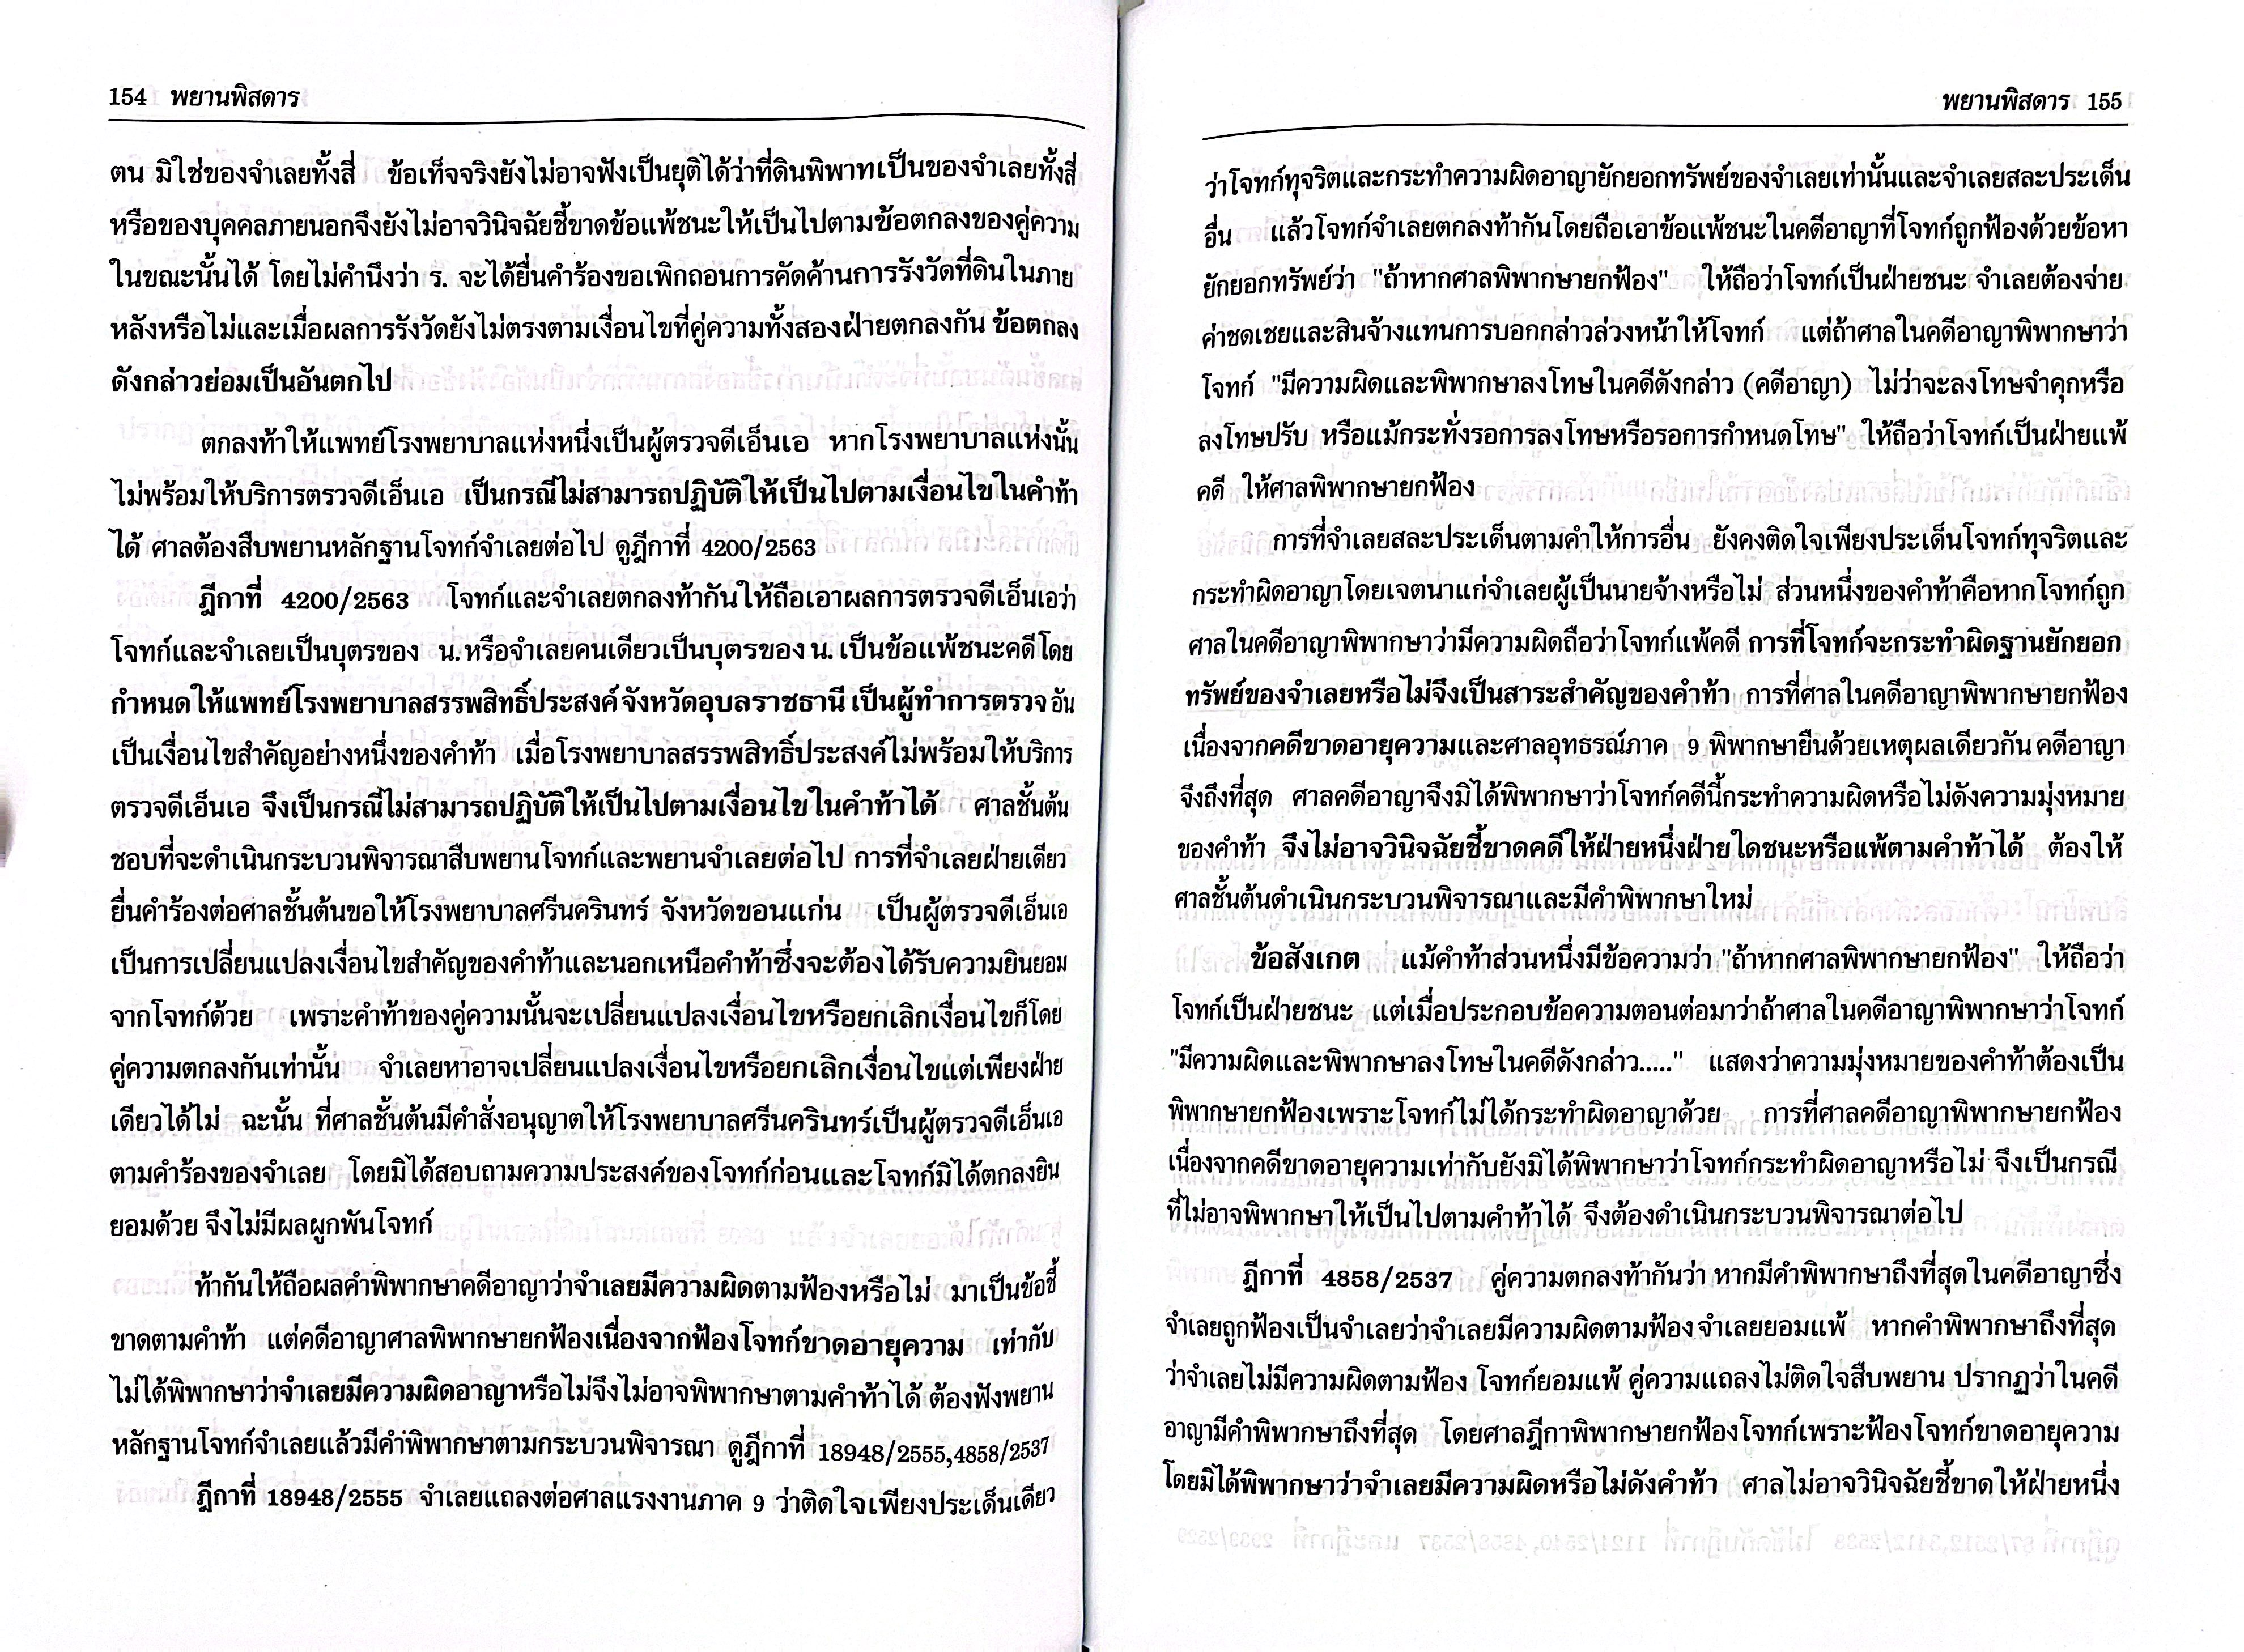 154 พยานพิสดาร
ตน มิใช่ของจำเลยทั้งสี่ ข้อเท็จจริงยังไม่อาจฟังเป็นยุติได้ว่าที่ดินพิพาทเป็นของจำเลยทั้งสี่
หรือของบุคคลภายนอกจึงยังไม่อาจวินิจฉัยชี้ขาดข้อแพ้ชนะให้เป็นไปตามข้อตกลงของคู่ความ
ในขณะนั้นได้ โดยไม่คำนึงว่า ร. จะได้ยื่นคำร้องขอเพิกถอนการคัดค้านการรังวัดที่ดินในภาย
หลังหรือไม่และเมื่อผลการรังวัดยังไม่ตรงตามเงื่อนไขที่คู่ความทั้งสองฝ่ายตกลงกัน ข้อตกลง
ดังกล่าวย่อมเป็นอันตกไป
ตกลงท้าให้แพทย์โรงพยาบาลแห่งหนึ่งเป็นผู้ตรวจดีเอ็นเอ หากโรงพยาบาลแห่งนั้น
ไม่พร้อมให้บริการตรวจดีเอ็นเอ เป็นกรณีไม่สามารถปฏิบัติให้เป็นไปตามเงื่อนไขในคำท้า
ได้ ศาลต้องสืบพยานหลักฐานโจทก์จำเลยต่อไป ดูฎีกาที่ 4200/2563
ฎีกาที่ 4200/2563 โจทก์และจำเลยตกลงท้ากันให้ถือเอาผลการตรวจดีเอ็นเอว่า
โจทก์และจำเลยเป็นบุตรของ น. หรือจำเลยคนเดียวเป็นบุตรของ น. เป็นข้อแพ้ชนะคดีโดย
กำหนดให้แพทย์โรงพยาบาลสรรพสิทธิ์ประสงค์จังหวัดอุบลราชธานี เป็นผู้ทำการตรวจ อัน
เป็นเงื่อนไขสำคัญอย่างหนึ่งของคำท้า เมื่อโรงพยาบาลสรรพสิทธิ์ประสงค์ไม่พร้อมให้บริการ
ตรวจดีเอ็นเอ จึงเป็นกรณีไม่สามารถปฏิบัติให้เป็นไปตามเงื่อนไขในคำท้าได้ ศาลชั้นต้น
ชอบที่จะดำเนินกระบวนพิจารณาสืบพยานโจทก์และพยานจำเลยต่อไป การที่จำเลยฝ่ายเดียว
ยื่นคำร้องต่อศาลชั้นต้นขอให้โรงพยาบาลศรีนครินทร์ จังหวัดขอนแก่น เป็นผู้ตรวจดีเอ็นเอ
เป็นการเปลี่ยนแปลงเงื่อนไขสำคัญของคำท้าและนอกเหนือคำท้าซึ่งจะต้องได้รับความยินยอม
จากโจทก์ด้วย เพราะคำท้าของคู่ความนั้นจะเปลี่ยนแปลงเงื่อนไขหรือยกเลิกเงื่อนไขก็โดย
คู่ความตกลงกันเท่านั้น จำเลยหาอาจเปลี่ยนแปลงเงื่อนไขหรือยกเลิกเงื่อนไขแต่เพียงฝ่าย
เดียวได้ไม่ ฉะนั้น ที่ศาลชั้นต้นมีคำสั่งอนุญาตให้โรงพยาบาลศรีนครินทร์เป็นผู้ตรวจดีเอ็นเอ
ตามคำร้องของจำเลย โดยมิได้สอบถามความประสงค์ของโจทก์ก่อนและโจทก์มิได้ตกลงยิน
ยอมด้วย จึงไม่มีผลผูกพันโจทก์
ท้ากันให้ถือผลคำพิพากษาคดีอาญาว่าจำเลยมีความผิดตามฟ้องหรือไม่ มาเป็นข้อชี้
ขาดตามคำท้า แต่คดีอาญาศาลพิพากษายกฟ้องเนื่องจากฟ้องโจทก์ขาดอายุความ เท่ากับ
ไม่ได้พิพากษาว่าจำเลยมีความผิดอาญาหรือไม่จึงไม่อาจพิพากษาตามคำท้าได้ ต้องฟังพยาน
หลักฐานโจทก์จำเลยแล้วมีคำพิพากษาตามกระบวนพิจารณา ดูฎีกาที่ 18948/2555,4858/2537
ฎีกาที่ 18948/2555 จำเลยแถลงต่อศาลแรงงานภาค 9 ว่าติดใจเพียงประเด็นเดียว
พยานพิสดาร 155
ว่าโจทก์ทุจริตและกระทำความผิดอาญายักยอกทรัพย์ของจำเลยเท่านั้นและจำเลยสละประเด็น
อื่น แล้วโจทก์จำเลยตกลงท้ากันโดยถือเอาข้อแพ้ชนะในคดีอาญาที่โจทก์ถูกฟ้องด้วยข้อหา
ยักยอกทรัพย์ว่า "ถ้าหากศาลพิพากษายกฟ้อง" ให้ถือว่าโจทก์เป็นฝ่ายชนะ จำเลยต้องจ่าย
ค่าชดเชยและสินจ้างแทนการบอกกล่าวล่วงหน้าให้โจทก์ แต่ถ้าศาลในคดีอาญาพิพากษาว่า
โจทก์ "มีความผิดและพิพากษาลงโทษในคดีดังกล่าว (คดีอาญา) ไม่ว่าจะลงโทษจำคุกหรือ
ลงโทษปรับ หรือแม้กระทั่งรอการลงโทษหรือรอการกำหนดโทษ" ให้ถือว่าโจทก์เป็นฝ่ายแพ้
คดี ให้ศาลพิพากษายกฟ้อง
การที่จำเลยสละประเด็นตามคำให้การอื่น ยังคงติดใจเพียงประเด็นโจทก์ทุจริตและ
กระทำผิดอาญาโดยเจตนาแก่จำเลยผู้เป็นนายจ้างหรือไม่ ส่วนหนึ่งของคำท้าคือหากโจทก์ถูก
ศาลในคดีอาญาพิพากษาว่ามีความผิดถือว่าโจทก์แพ้คดี การที่โจทก์จะกระทำผิดฐานยักยอก
ทรัพย์ของจำเลยหรือไม่จึงเป็นสาระสำคัญของคำท้า การที่ศาลในคดีอาญาพิพากษายกฟ้อง
เนื่องจากคดีขาดอายุความและศาลอุทธรณ์ภาค 9 พิพากษายืนด้วยเหตุผลเดียวกัน คดีอาญา
จึงถึงที่สุด ศาลคดีอาญาจึงมิได้พิพากษาว่าโจทก์คดีนี้กระทำความผิดหรือไม่ดังความมุ่งหมาย
ของคำท้า จึงไม่อาจวินิจฉัยชี้ขาดคดีให้ฝ่ายหนึ่งฝ่ายใดชนะหรือแพ้ตามคำท้าได้ ต้องให้
ศาลชั้นต้นดำเนินกระบวนพิจารณาและมีคำพิพากษาใหม่
ข้อสังเกต แม้คำท้าส่วนหนึ่งมีข้อความว่า "ถ้าหากศาลพิพากษายกฟ้อง" ให้ถือว่า
โจทก์เป็นฝ่ายชนะ แต่เมื่อประกอบข้อความตอนต่อมาว่าถ้าศาลในคดีอาญาพิพากษาว่าโจทก์
"มีความผิดและพิพากษาลงโทษในคดีดังกล่าว....." แสดงว่าความมุ่งหมายของคำท้าต้องเป็น
พิพากษายกฟ้องเพราะโจทก์ไม่ได้กระทำผิดอาญาด้วย การที่ศาลคดีอาญาพิพากษายกฟ้อง
เนื่องจากคดีขาดอายุความเท่ากับยังมิได้พิพากษาว่าโจทก์กระทำผิดอาญาหรือไม่ จึงเป็นกรณี
ที่ไม่อาจพิพากษาให้เป็นไปตามคำท้าได้ จึงต้องดำเนินกระบวนพิจารณาต่อไป
ฎีกาที่ 4858/2537 คู่ความตกลงท้ากันว่า หากมีคำพิพากษาถึงที่สุดในคดีอาญาซึ่ง
จำเลยถูกฟ้องเป็นจำเลยว่าจำเลยมีความผิดตามฟ้อง จำเลยยอมแพ้ หากคำพิพากษาถึงที่สุด
ว่าจำเลยไม่มีความผิดตามฟ้อง โจทก์ยอมแพ้ คู่ความแถลงไม่ติดใจสืบพยาน ปรากฏว่าในคดี
อาญามีคำพิพากษาถึงที่สุด โดยศาลฎีกาพิพากษายกฟ้องโจทก์เพราะฟ้องโจทก์ขาดอายุความ
โดยมิได้พิพากษาว่าจำเลยมีความผิดหรือไม่ดังคำท้า ศาลไม่อาจวินิจฉัยชี้ขาดให้ฝ่ายหนึ่ง